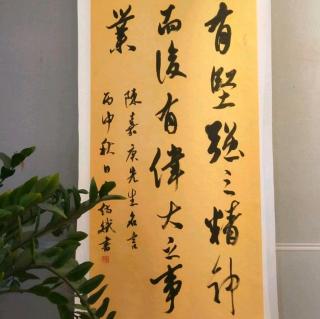 有堅強之精神
而後有偉大之事
業
陳嘉庚先生名言
丙申秋日
書